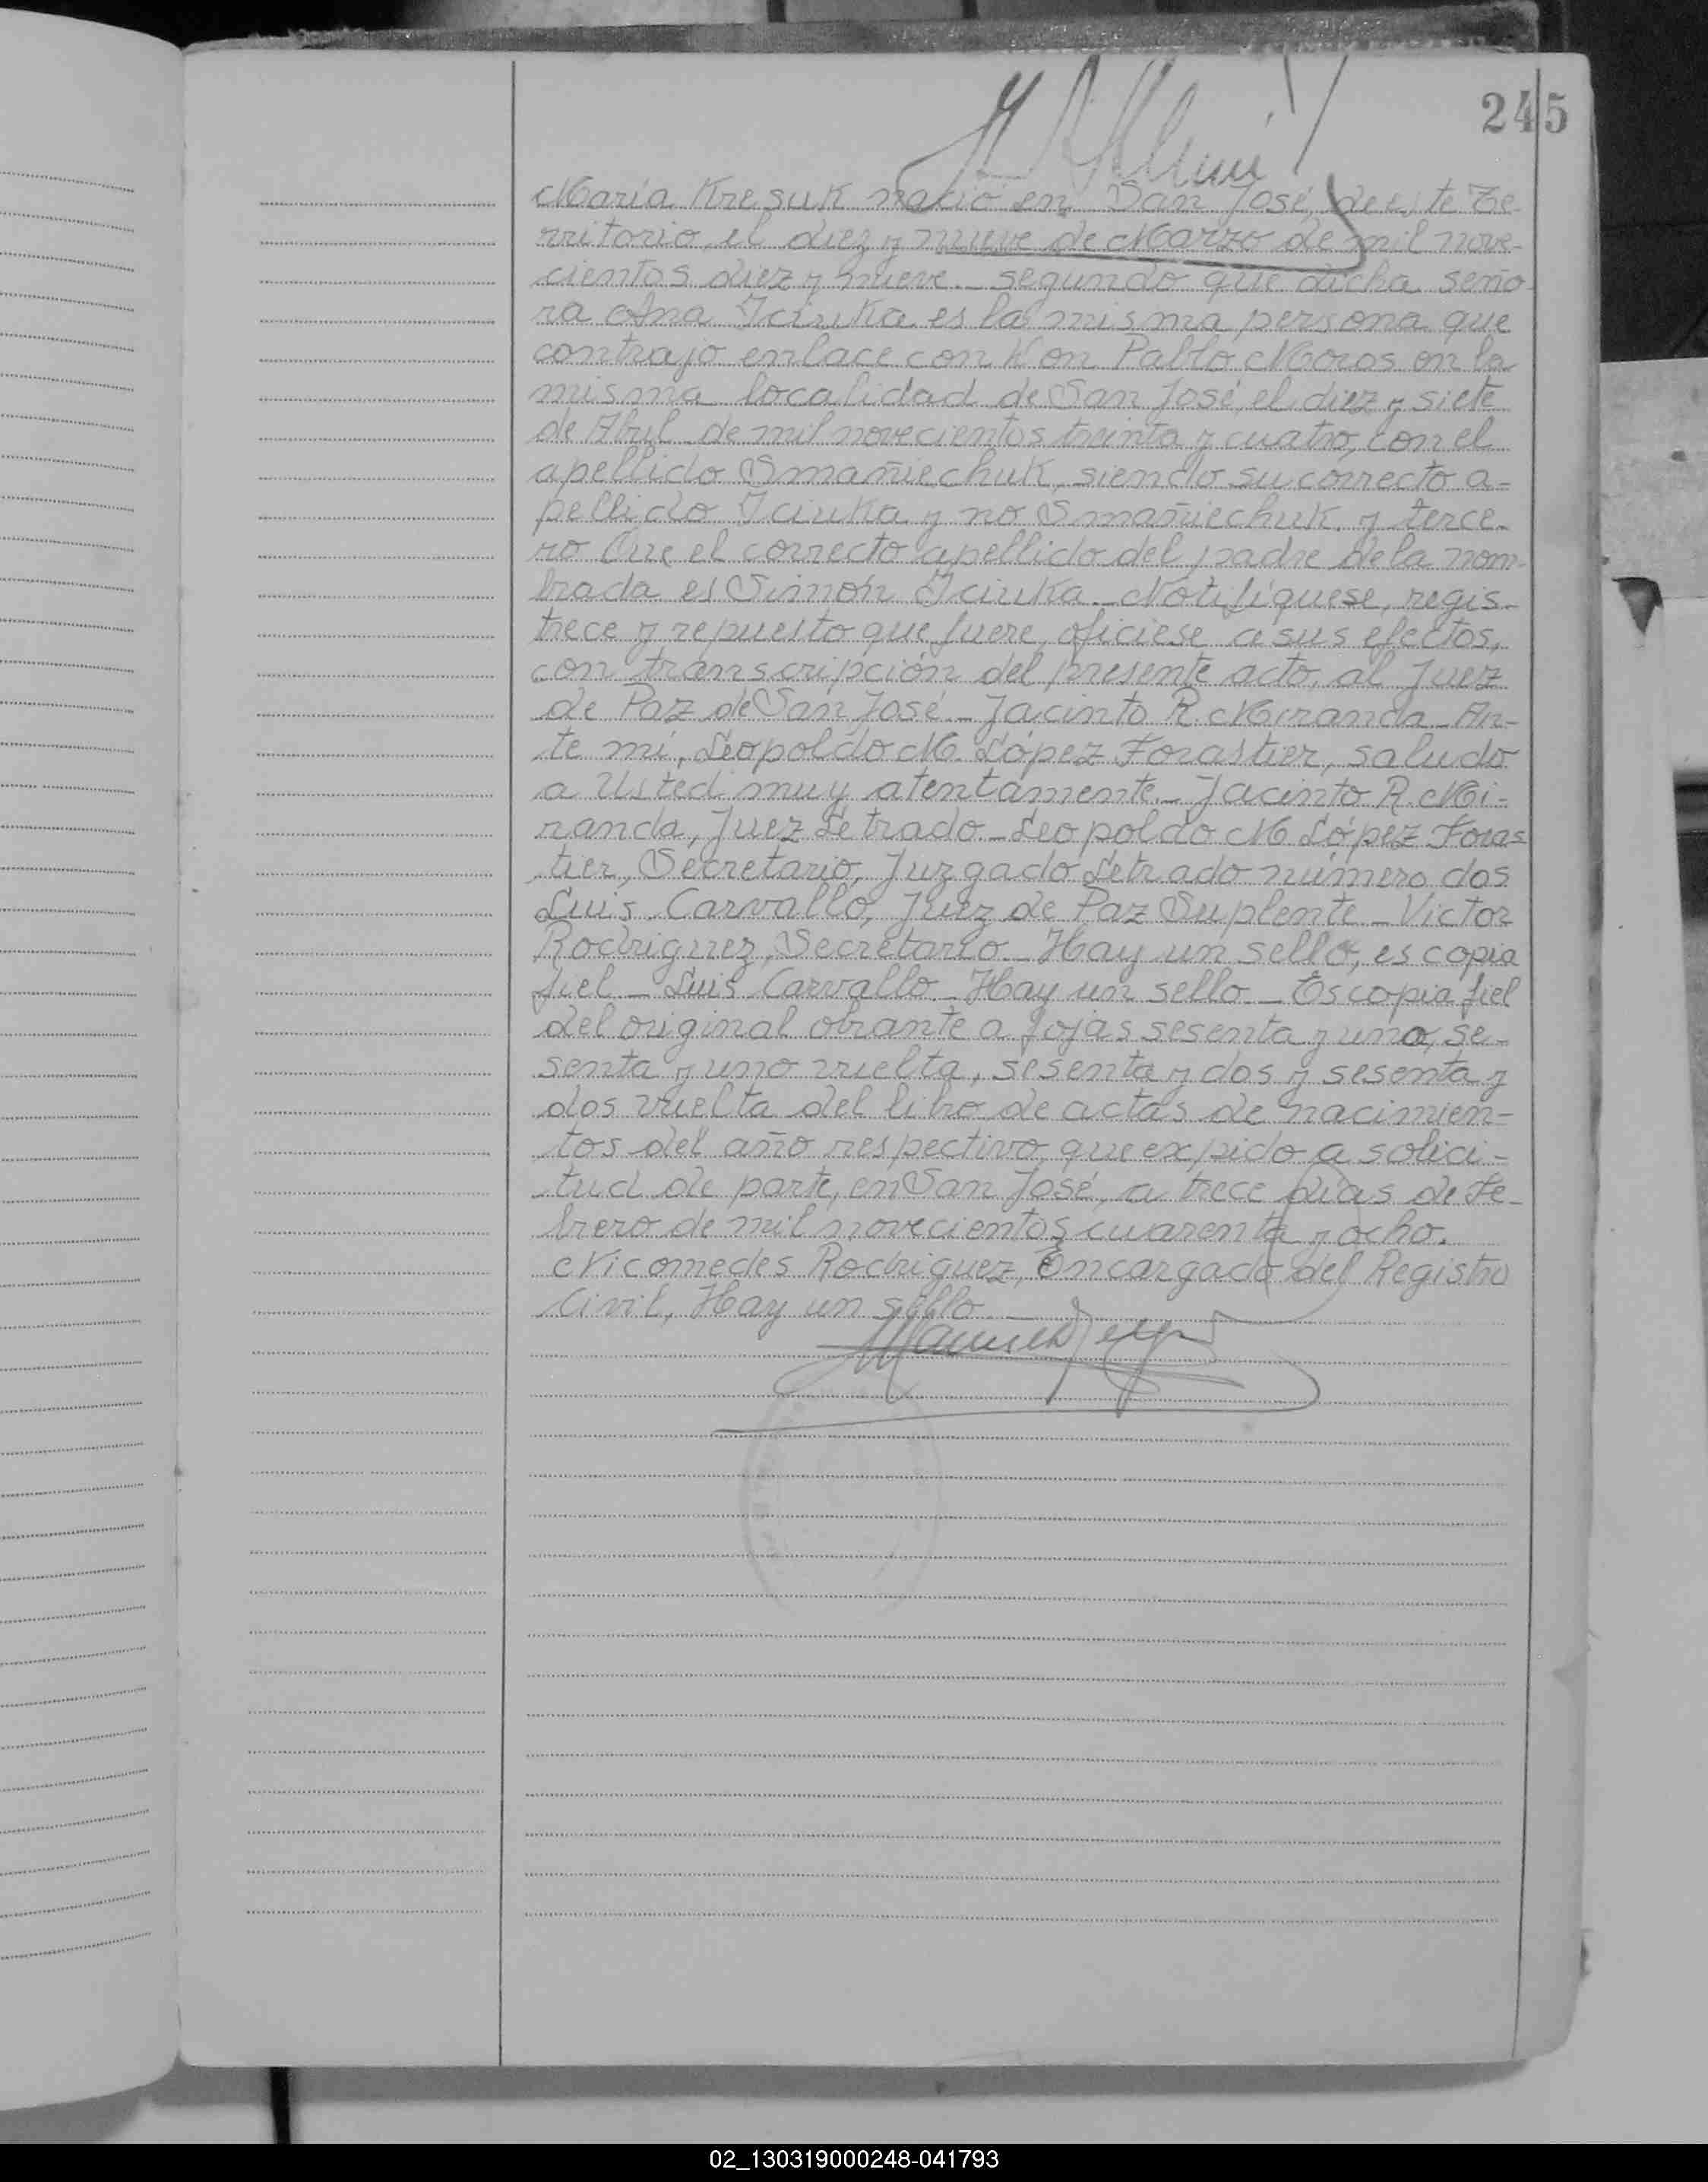 245
María Kresuk nació en San José, de este Te-
rritorio, el diez y nueve de Marzo de mil nove-
cientos diez y nueve._ segundo que dicha seño-
ra Ana Iciuka es la misma persona que
contrajo enlace con Don Pablo Moros en la
misma localidad de San José, el diez y siete
de Abril de mil novecientos treinta y cuatro, con el
apellido Smañiechuk, siendo su correcto a-
pellido Iciuka y no Smañiechuk. y terce-
ro Que el correcto apellido del padre de la nom-
brada es Simón Iciuka._ Notifíquese, regis-
trece y repuesto que fuere, oficiese a sus efectos,
con transcripción del presente acto, al Juez
de Paz de San José._ Jacinto R. Miranda_ An-
te mí, Leopoldo M. López Forastier, saludo
a Usted muy atentamente._ Jacinto R. Mi-
randa, Juez Letrado._ Leopoldo M López Foras
tier, Secretario, Juzgado Letrado número dos
Luis Carvallo, Juez de Paz Suplente_ Victor
Rodriguez, Secretario._ Hay un sello, es copia
fiel_ Luis Carvallo._ Hay un sello_ Es copia fiel
del original obrante a fojas sesenta y uno, se-
senta y uno vuelta, sesenta y dos y sesenta y
dos vuelta del libro de actas de nacimien-
tos del año respectivo, que expido a solici-
tud de parte, en San José, a trece días de Fe-
brero de mil novecientos cuarenta y ocho.
Nicomedes Rodriguez, Encargado del Registro
Civil, Hay un sello._
02_130319000248-041793